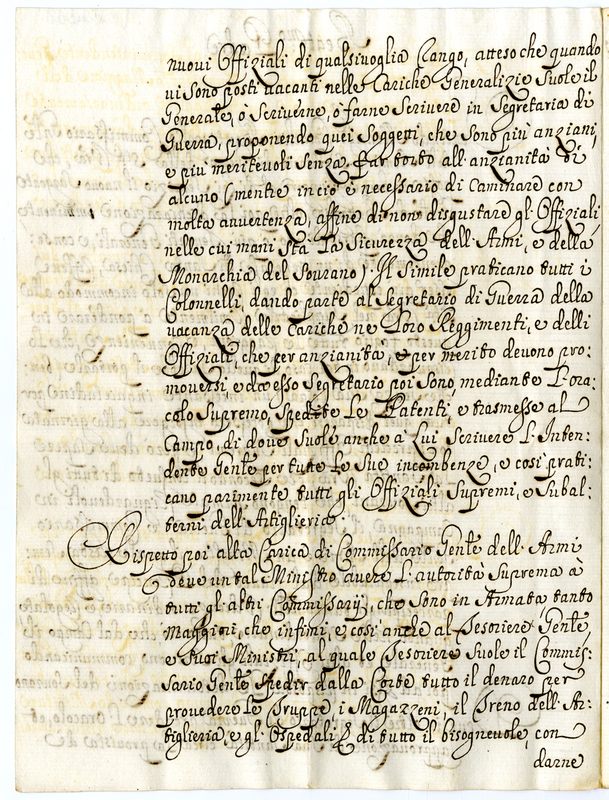 nuovi Offiziali di qualsivoglia Rango, atteso che quando
vi sono posti vacanti nelle Cariche Generalizie suole il
Generale, ò scriverne, ò farne scrivere in Segretaria di
Guerra, proponendo quei Soggetti, che sono più anziani,
e più meritevoli senza far torto all'anzianità di
alcuno (mentre in ciò è necessario di caminare con
molta avvertenza, affine di non disgustare gl'Offiziali
nelle cui mani stà la sicurezza dell'Armi, e della
Monarchia del Sovrano). Il simile praticano tutti i
Colonnelli, dando parte al Segretario di Guerra della
vacanza delle Cariche ne loro Reggimenti, e delli
Offiziali, che per anzianità, e per merito devono pro:
moversi, e da esso Segretario poi sono, mediante l'ora:
colo supremo, spedite le Patenti, e trasmesse al
Campo, di dove suole anche à lui scrivere l'Inten:
dente Gen͠te per tutte le sue incombenze, e così prati:
cano parimente tutti gli Offiziali supremi, e subal:
terni dell'Artiglieria
Rispetto poi alla Carica di Commissario Gen͠te dell'Armi
deve un tal Ministro avere l'autorità suprema à
tutti gl'altri Commissarij, che sono in Armata, tanto
Maggiori, che infimi, e così anche al Tesoriere Gen͠te,
e suoi Ministri, al quale Tesoriere suole il Commis:
sario Gen͠te spedir dalla Corte tutto il denaro per
provedere le Truppe, i Magazzeni, il Treno dell'Ar:
tiglieria, e gl'Ospedali di tutto il bisognevole, con
darne